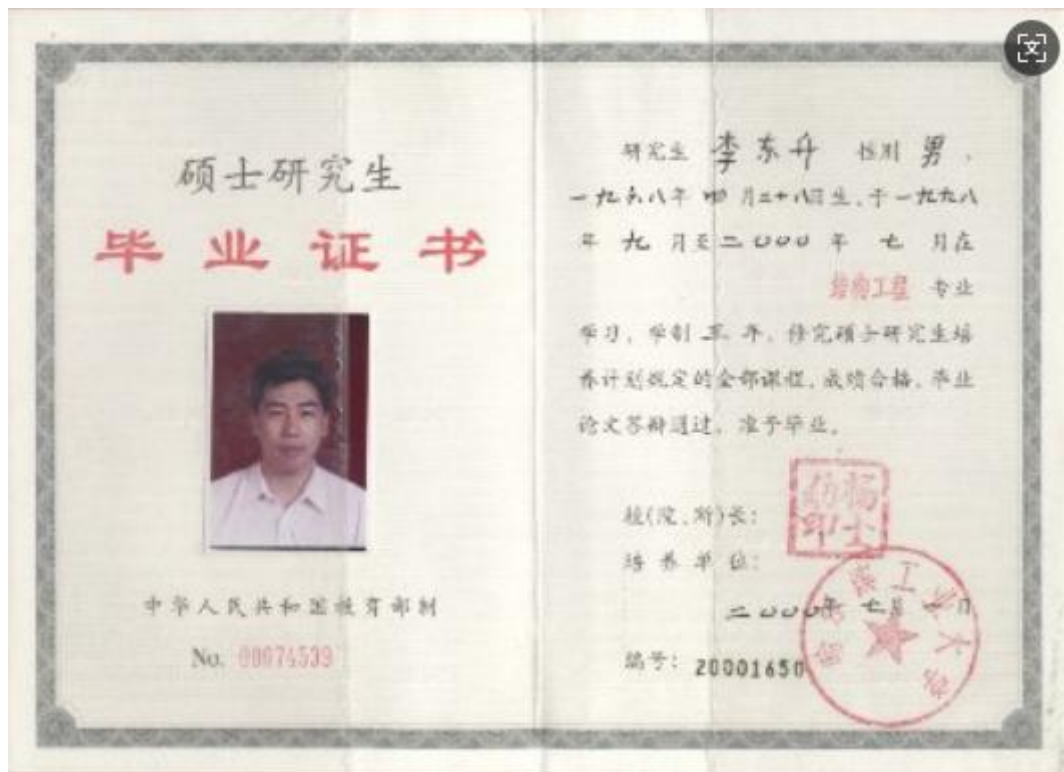 硕士研究生
毕业证书
中华人民共和国教育部制
No. 00074539
研究生 李东升 性别 男,
一九六八年 四 月二十八日生,于一九九八
年 九 月至二〇〇〇 年 七 月在
结构工程 专业
学习,学制 年,修完硕士研究生培
养计划规定的全部课程,成绩合格,毕业
论文答辩通过,准予毕业。
杨士勤印
校(院、所)长:
培养单位:
二〇〇〇年 七月 日
编号: 20001650
哈尔滨工业大学